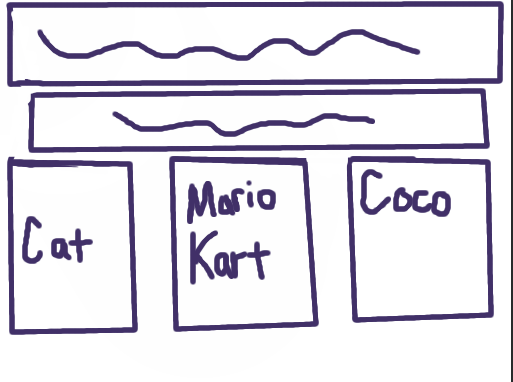 Cat
Mario
Kart
Coco